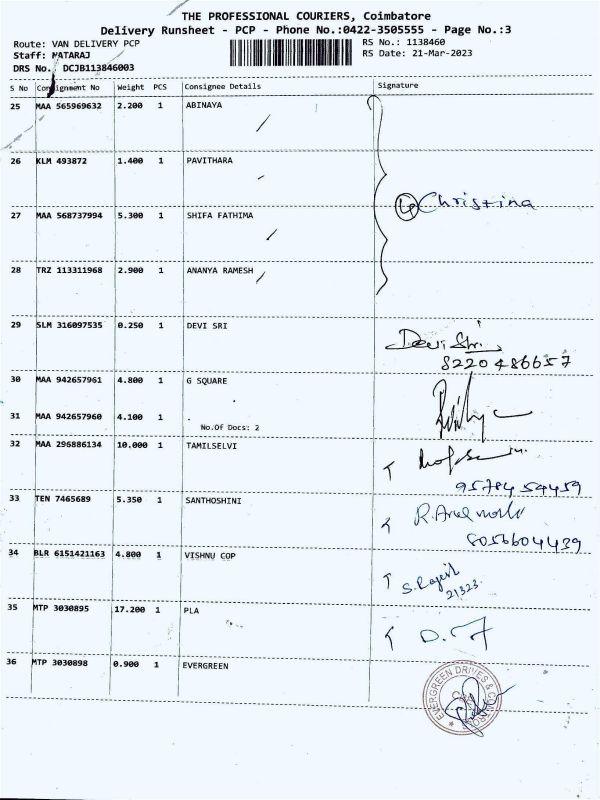 THE PROFESSIONAL COURIERS, Coimbatore
Delivery Runsheet - PCP - Phone No.:0422-3505555 - Page No.:3
Route: VAN DELIVERY PCP RS No.: 1138460
Staff: MATARAJ RS Date: 21-Mar-2023
DRS No. DCJB113846003
S No Consignment No Weight PCS Consignee Details Signature
25 MAA 565969632 2.200 1 ABINAYA
26 KLM 493872 1.400 1 PAVITHARA
4 Christina
27 MAA 568737994 5.300 1 SHIFA FATHIMA
28 TRZ 113311968 2.900 1 ANANYA RAMESH
29 SLM 316097535 0.250 1 DEVI SRI
Devi Sri
8220486657
30 MAA 942657961 4.800 1 G SQUARE
31 MAA 942657960 4.100 1
No.Of Docs: 2
32 MAA 296886134 10.000 1 TAMILSELVI
9578454459
33 TEN 7465689 5.350 1 SANTHOSHINI
8056604439
34 BLR 6151421163 4.800 1 VISHNU COP
S. Rajesh
21323
35 MTP 3030895 17.200 1 PLA
36 MTP 3030898 0.900 1 EVERGREEN
EVERGREEN DRIVES & CONTROLS